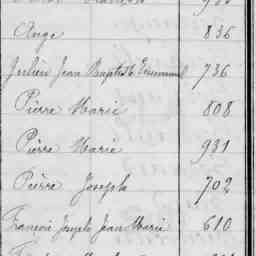 Ange 836
Julien Jean Baptiste Emmanuel 736
Pierre Marie 808
Pierre Marie 931
Pierre Joseph 702
François Joseph Jean Marie 610